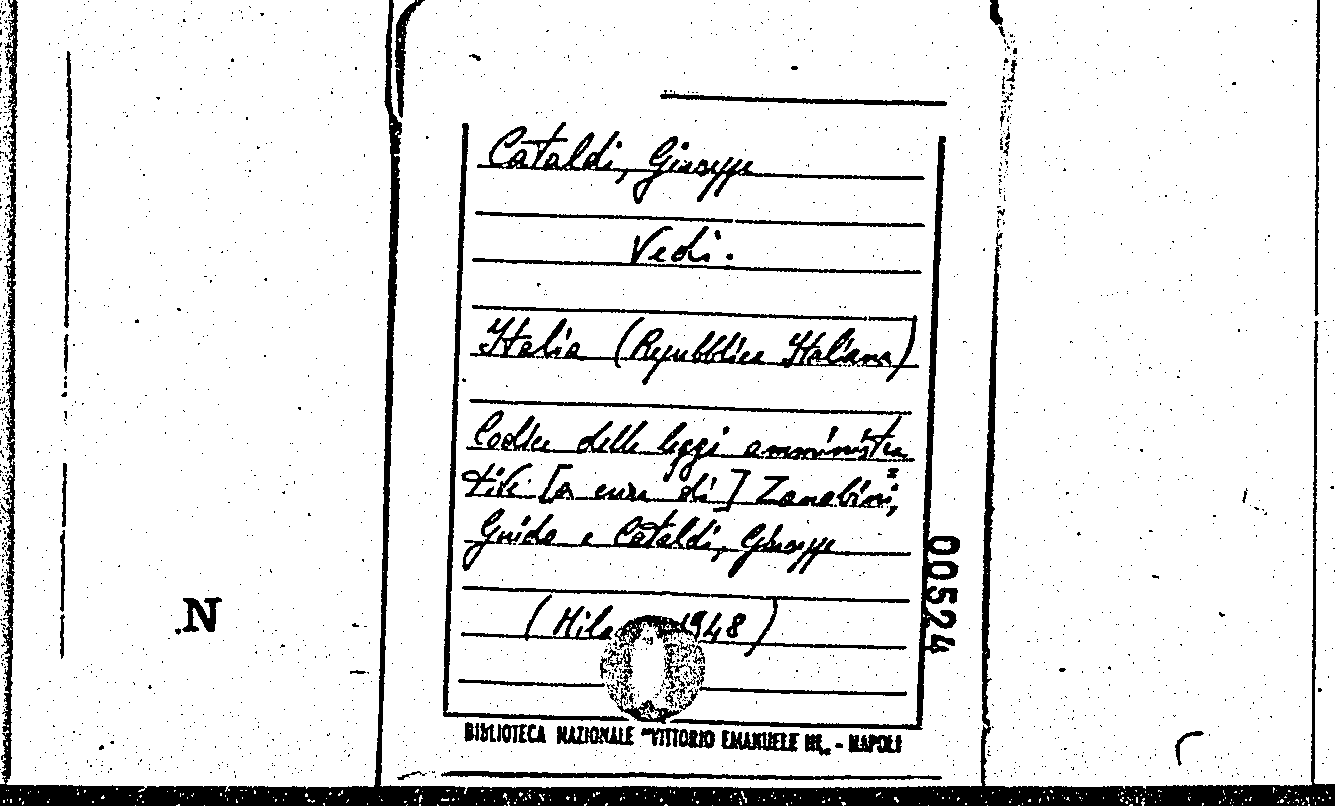 Cataldi, Giuseppe
Vedi.
Italia (Repubblica Italiana)
Codice delle leggi amministra=
tive [a cura di] Zanobini,
Guido e Cataldi, Giuseppe
(Mila 1948)
00524
N
BIBLIOTECA NAZIONALE "VITTORIO EMANUELE III„ - NAPOLI